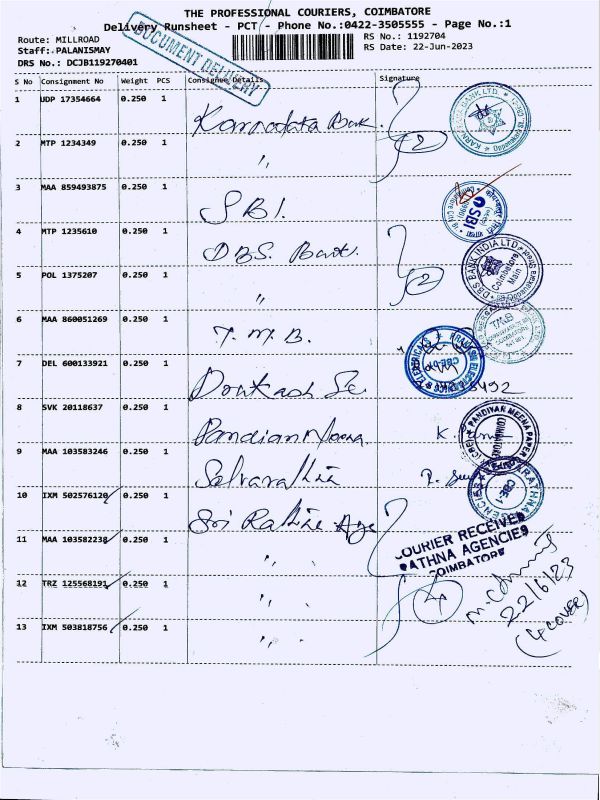 THE PROFESSIONAL COURIERS, COIMBATORE
Delivery Runsheet - PCT - Phone No.:0422-3505555 - Page No.:1
Route: MILLROAD
RS No.: 1192704
Staff: PALANISMAY
RS Date: 22-Jun-2023
DRS No.: DCJB119270401
DOCUMENT DELIVERY
S No Consignment No Weight PCS Consignee Details Signature
1 UDP 17354664 0.250 1 Karnataka Bank.
2 MTP 1234349 0.250 1 " 2
3 MAA 859493875 0.250 1 SBI.
SBI
4 MTP 1235610 0.250 1 DBS. Bank.
DBS BANK INDIA LTD
Coimbatore
Main
5 POL 1375207 0.250 1 " 2
6 MAA 860051269 0.250 1 T. M. B.
TMB
7 DEL 600133921 0.250 1
8 SVK 20118637 0.250 1 Pandian Meena. K.
PANDIYAR MEENA PAPER
COIMBATORE
9 MAA 103583246 0.250 1
CBE-1
10 IXM 502576120 0.250 1 Sri Rathne Age
11 MAA 103582238 0.250 1 "
COURIER RECEIVED
RATHNA AGENCIES
COIMBATORE
12 TRZ 125568191 0.250 1 " 4
22/6/23
13 IXM 503818756 0.250 1 "
(4 COVER)